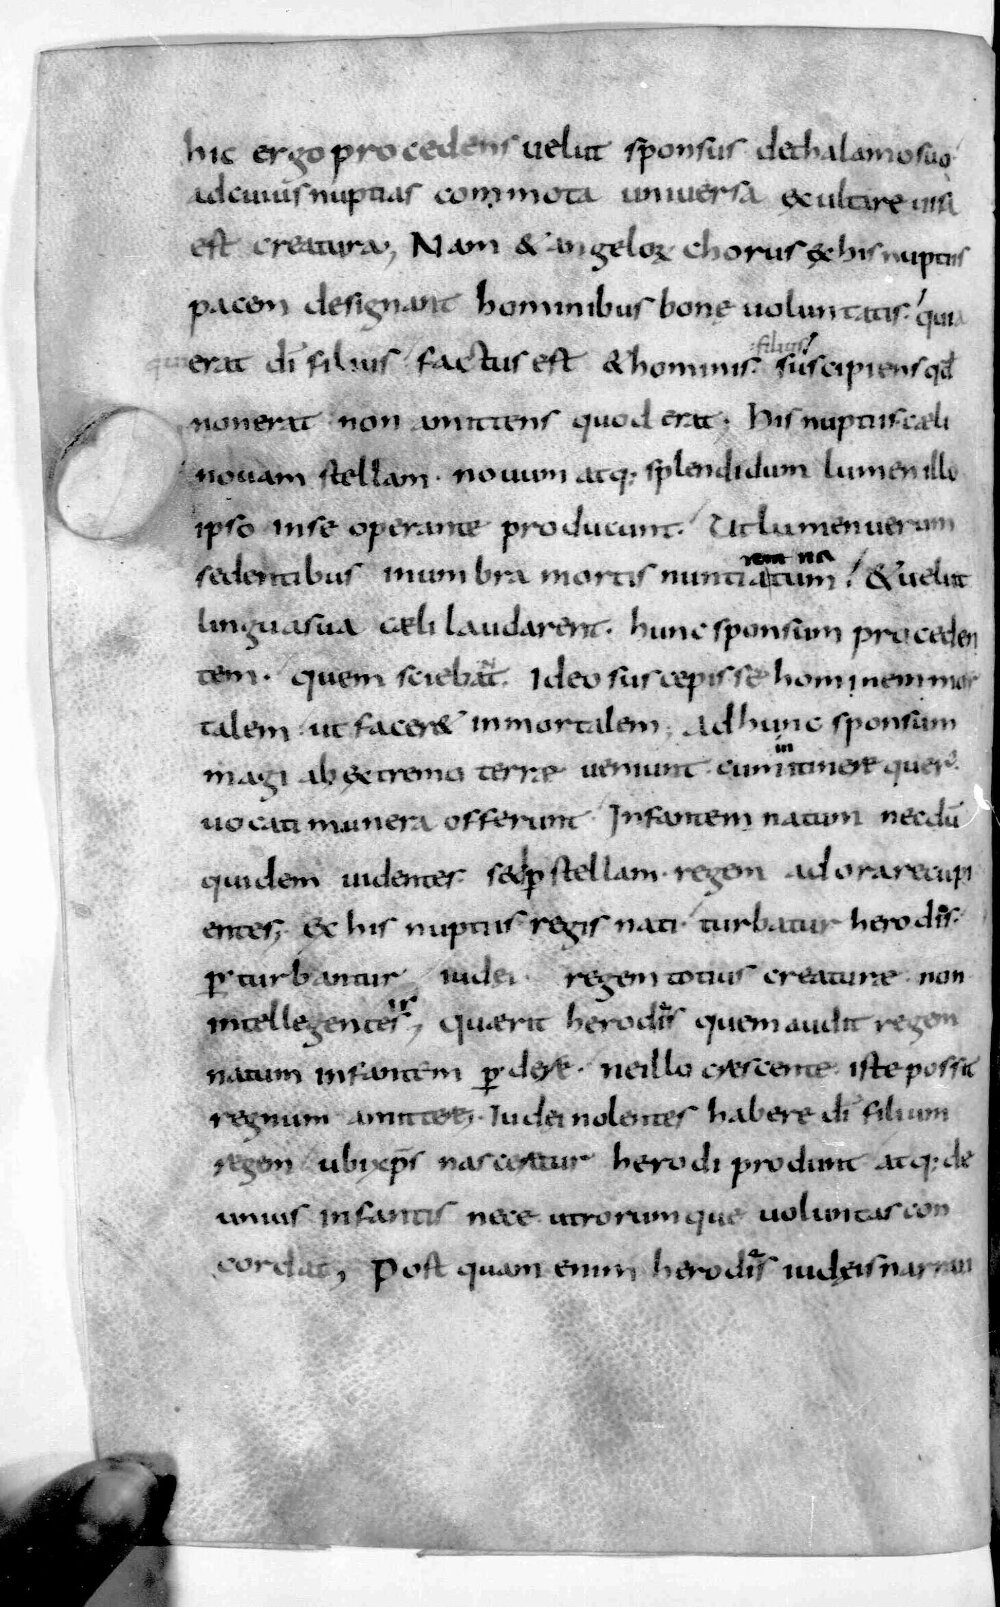 hic ergo procedens uelut sponsus dethalamosuo
adcuiusnuptias commota uniuersa exultare uisa
est creatura, Nam & angeloꝝ chorus exhisnuptiis
pacem designant hominibus bonę uoluntatis. quia
erat dī filius factus est & hominis. filius suscipiens qđ
nonerat non amittens quod erat. His nuptiis cæli
nouam stellam. nouum atq; splendidum lumen illo
ipso inse operante producunt. Ut lumen uerum
sedentibus inumbra mortis nuntiatum rent na & uelut
lingua sua cæli laudarent. hunc sponsum proceden
tem. quem sciebat. Ideo suscepisse hominem mor
talem ut facer& inmortalem. ad hunc sponsum
magi ab extrema terræ ueniunt. cum in itinere
uocati munera offerunt Infantem natum necdū
quidem uidentes. sed ꝑ stellam. regem adorare cupi
entes; ex his nuptiis regis nati turbatur herodis.
ꝑturbantur iudei. regem totius creaturæ non
intellegentes, Quærit herodis quem audit regem
natum infantem ꝑdere. neillo crescente iste possit
regnum amittere; Iudei nolentes habere dī filium
regem ubi xp̄s nasceretur herodi produnt atq; de
unius infantis nece utrorumque uoluntas con
cordat, Post quam enim herodis iudęis narran